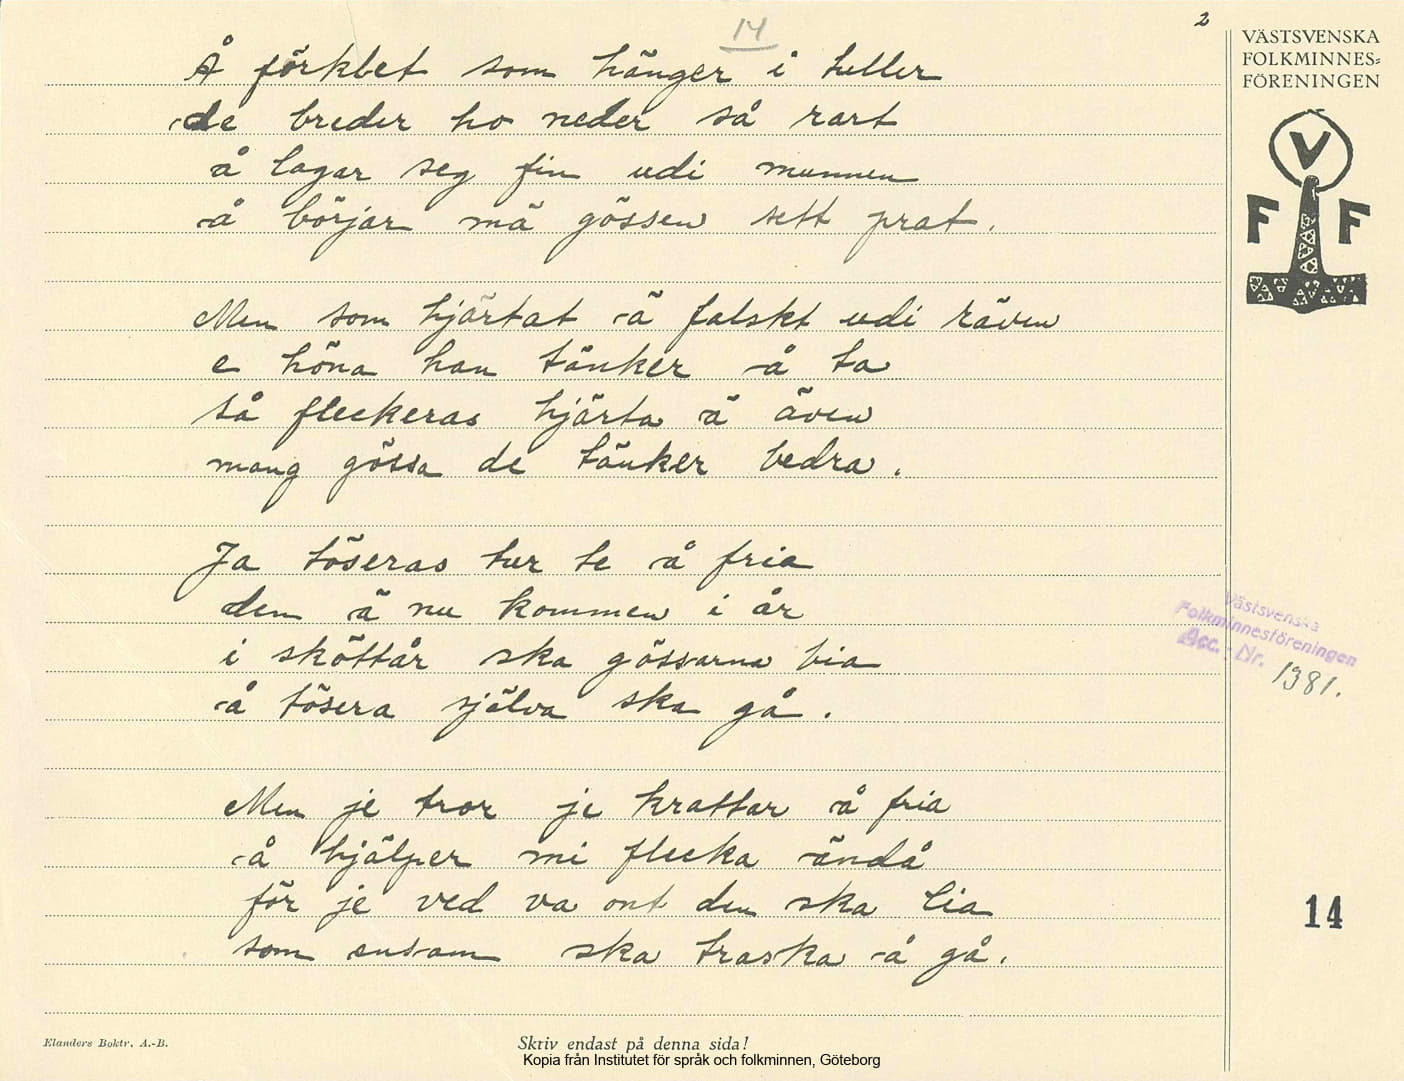 14
2
VÄSTSVENSKA
FOLKMINNES=
FÖRENINGEN
V
F F
Å förklet som hänger i tuller
de breder ho neder så rart
å lagar seg fin udi munnen
å börjar mä gössen sett prat.
Men som hjärtat ä falskt udi räven
e höna han tänker å ta
så fleckeras hjärta ä även
mang gössa de tänker bedra.
Ja töseras tur te å fria
den ä nu kommen i år
i sköttår ska gössarna bia
å tösera själva ska gå.
Men je tror je krattar å fria
å hjälper mi flecka ändå
för je ved va ont den ska lia
som ensam ska traska å gå.
Västsvenska
Folkminnesföreningen
Acc. - Nr. 1381.
14
Elanders Boktr. A.-B.
Skriv endast på denna sida!
Kopia från Institutet för språk och folkminnen, Göteborg